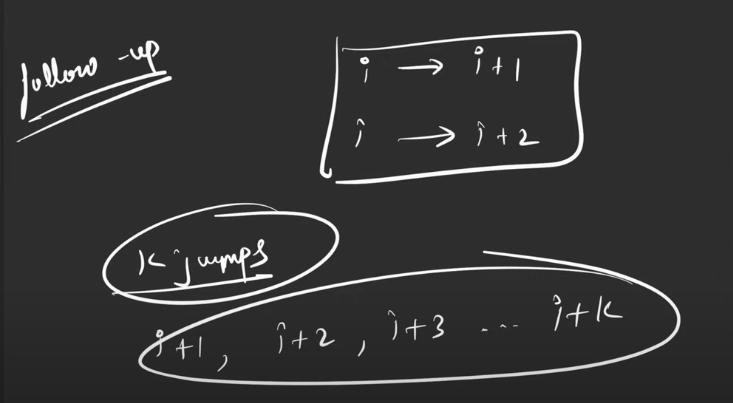 follow-up
i → i+1
i → i+2
K jumps
i+1, i+2, i+3 ... i+k